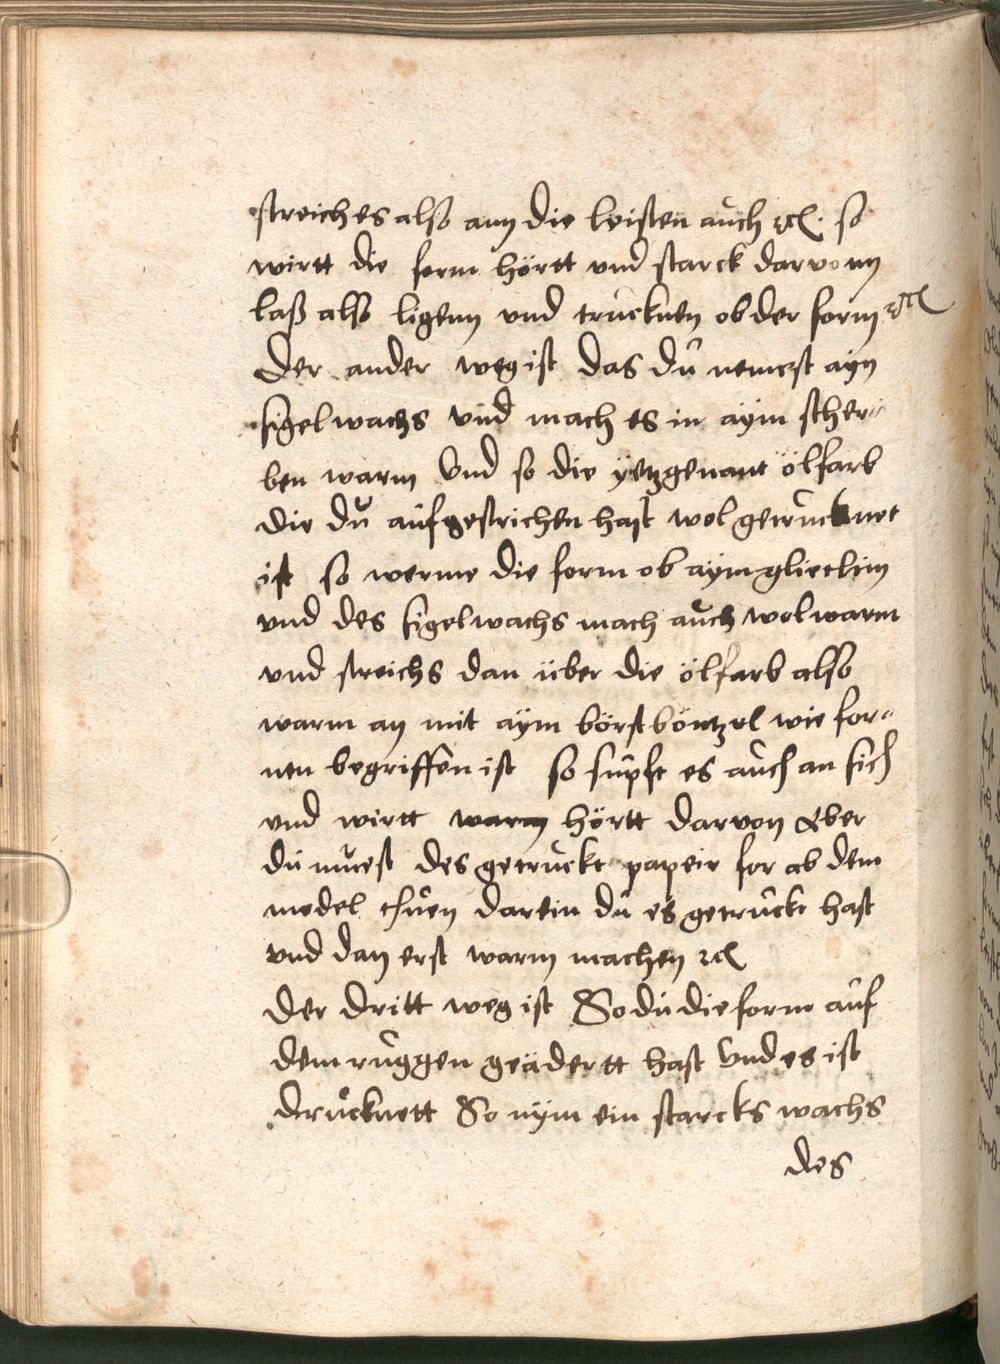 streich es also ann die leisten auch ꝛcl. so
wirtt die form hörtt vnd starck darvonn
laß also ligenn vnd trucknen ob der form ꝛcl
Der ander weg ist das du nemest ayn
sigelwachs vnd mach es in aÿm scher-
ben warm Vnd so die ÿetzgenant ölfarb
die du aufgestrichen hast wol getrucknet
ist so werme die form ob aÿm glietlin
vnd des sigelwachs mach auch wol warm
vnd streichs dan über die ölfarb also
warm an mit aÿm börstböntzel wie for-
nen begriffen ist so supft es auch an sich
vnd wirtt warm hörtt darvon Aber
du muest des getruckt papeir for ab dem
model thuen darein du es getruckt hast
vnd dan erst warm machen ꝛcl
Der dritt weg ist So du die form auf
dem ruggen geädertt hast Vnd es ist
drucknett So nÿm ein starcks wachs
des